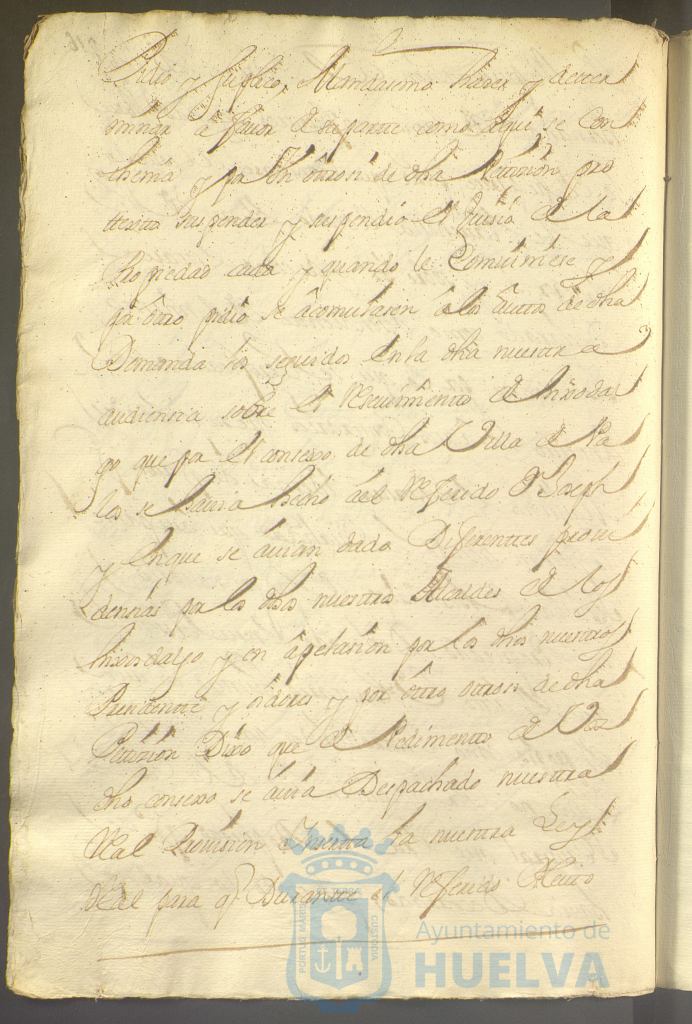 Pidio y suplico, Mandasemo haser y deter
minar a favor de su parte como aqui se con
thenia y pa Un otrosi de dha Petizion pro
texto suspender y suspendio el Juisio de la
Propiedad cada y quando le Combiniese y
pr otro pidio se acomulasen a los Autos de dha
Demanda los seguidos en la dha nuestra
audiencia sobre el Resevimiento de hijodal
go que pr el consexo de dha Villa de Pa
los se havia hecho ael Referido Dn Joseph
y en que se avian dado Diferentes provi
dencias pr los dhos nuestros Alcaldes de los
hixosdalgo y en apelasion por los dhos nuestros
Presidente y oidores y por otro otrosi de dha
Petizion Dixo que de Pedimento de
dho consexo se avia Despachado nuestra
Real Provision Inserta la nuestra Ley
Real para q Durante el Referido Pleito
Ayuntamiento de
HUELVA